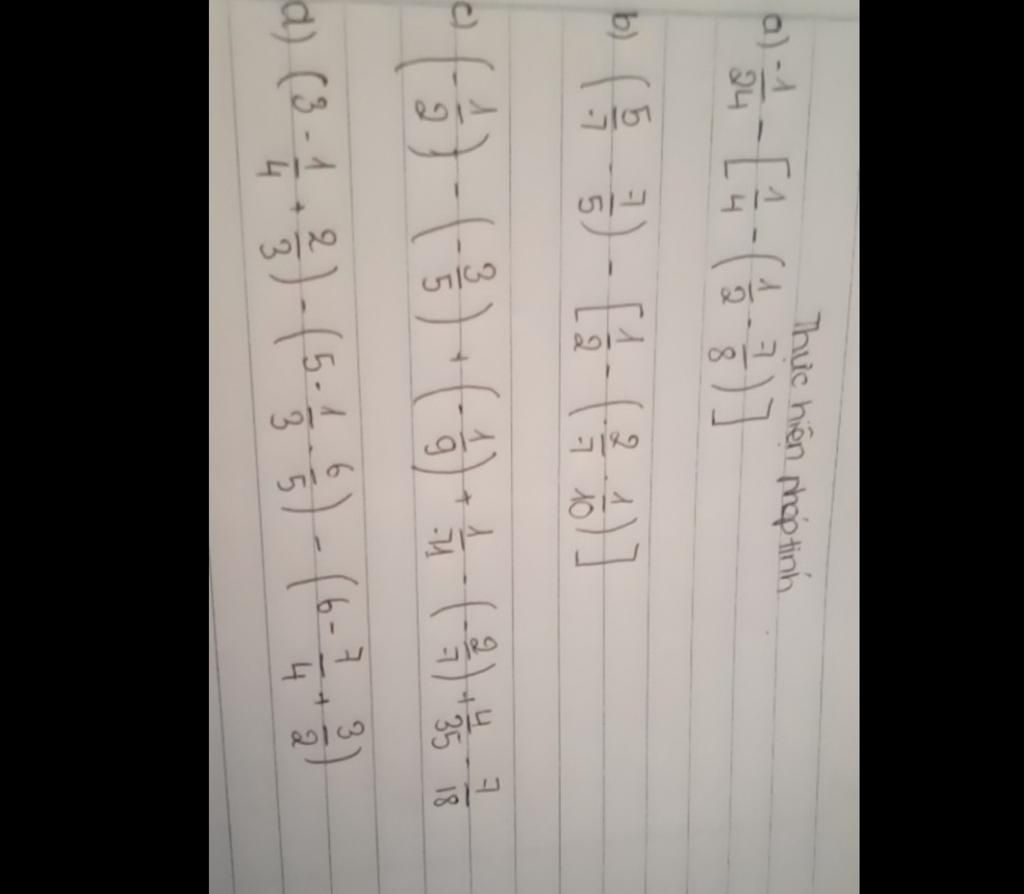 Thực hiện phép tính
a) -1/24 - [1/4 - (1/2 - 7/8)]
b) (5/7 - 7/5) - [1/2 - (2/7 - 1/10)]
c) (-1/2) - (-3/5) + (-1/9) + 1/71 - (-2/7) + 4/35 - 7/18
d) (3 - 1/4 + 2/3) - (5 - 1/3 - 6/5) - (6 - 7/4 + 3/2)